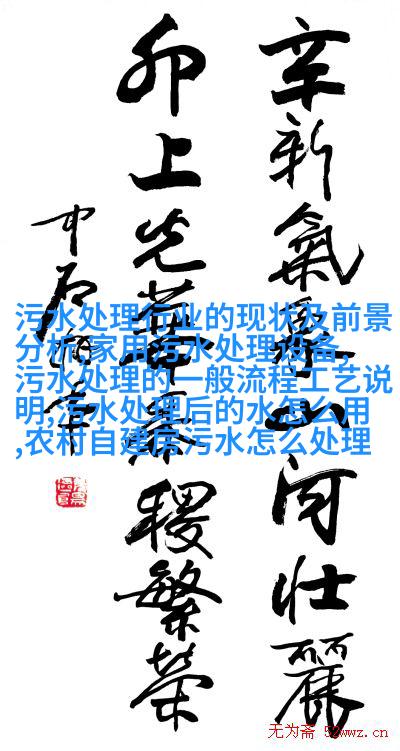 辛新氣象山河壮麗
卯上光華黍稷繁荣
中石
污水处理行业的现状及前景
分析,家用污水处理设备
污水处理的一般流程工艺说
明,污水处理后的水怎么用
,农村自建房污水怎么处理
无为斋 52wwz.cn